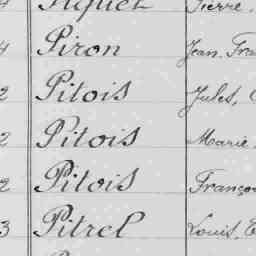 Piquet Pierre,
4 Piron Jean Fra
2 Pitois Jules,
2 Pitois Marie
2 Pitois Franço
3 Pitrel Louis, E